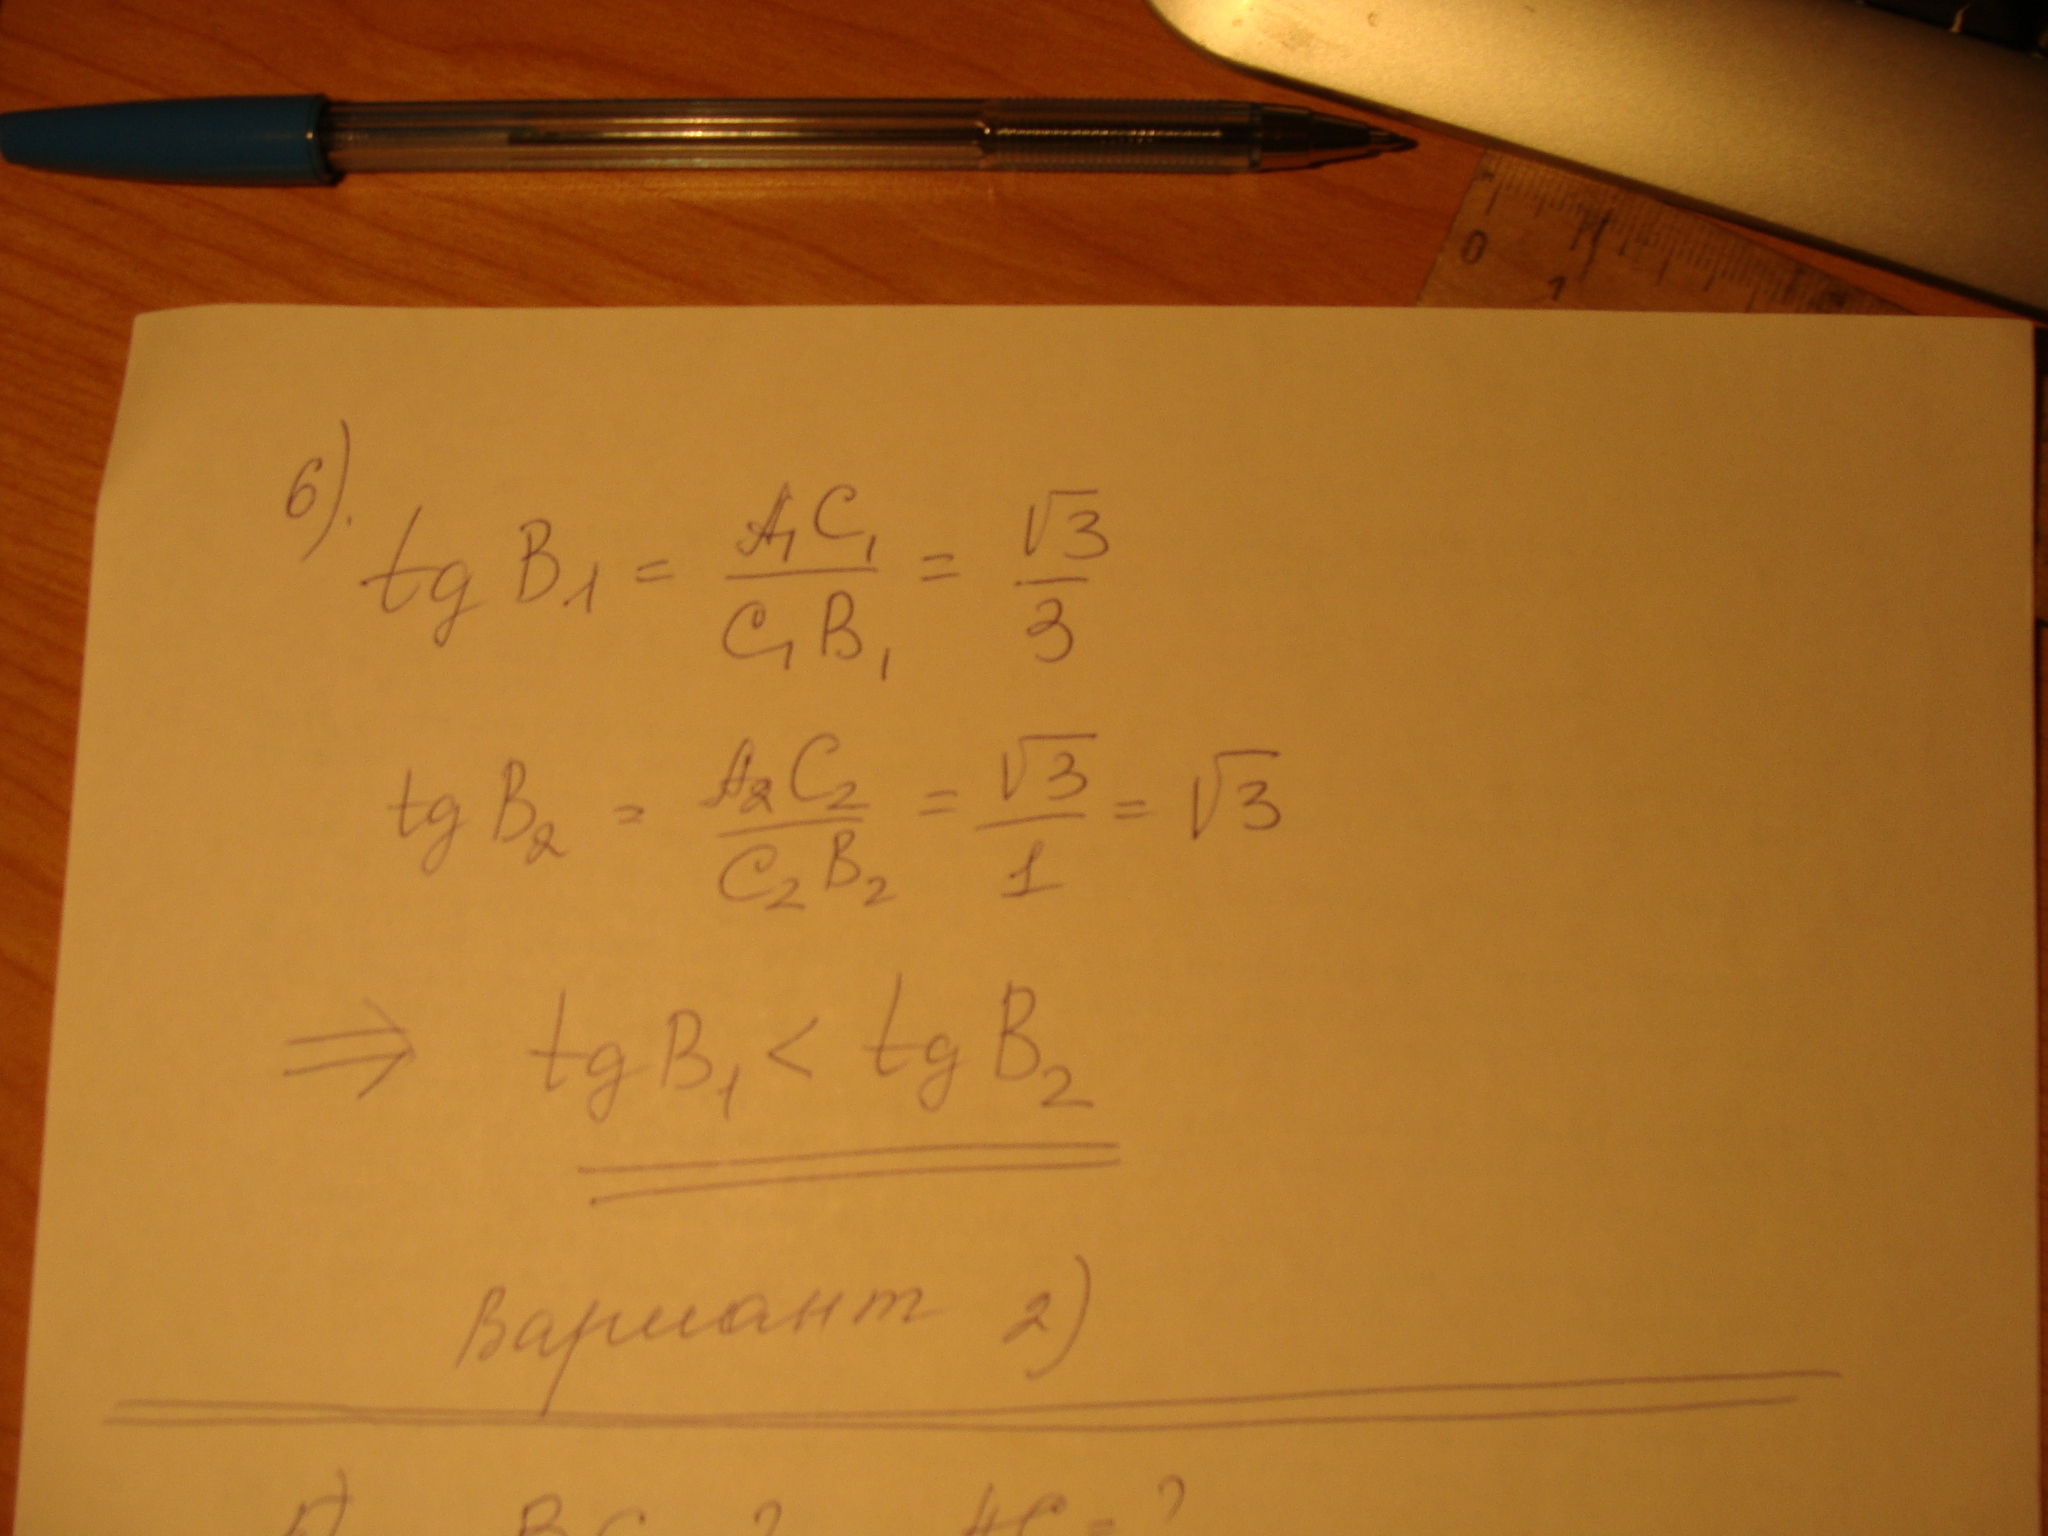 0 1
6).
tg B₁ = A₁C₁ / C₁B₁ = √3 / 3
tg B₂ = A₂C₂ / C₂B₂ = √3 / 1 = √3
⇒ tg B₁ < tg B₂
Вариант 2)